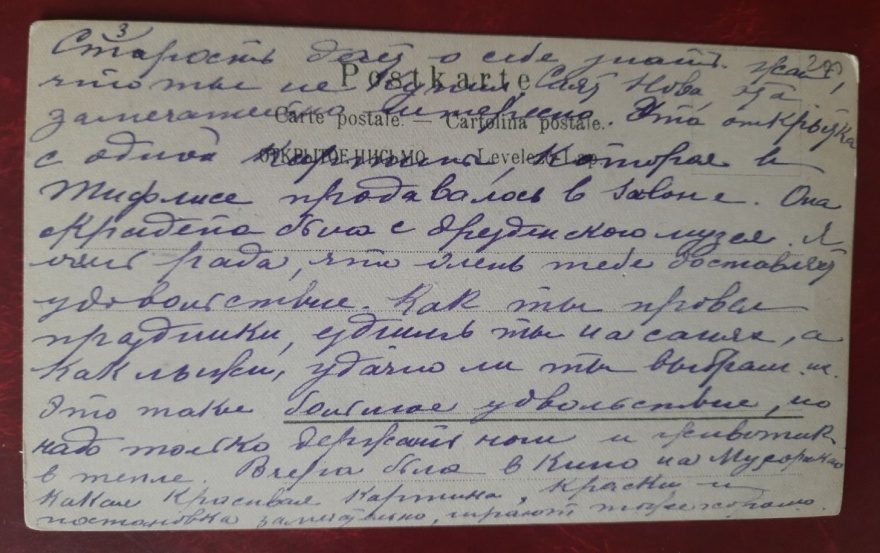 3
Старость дает о себе знать. Жаль,
Postkarte
что ты не Саят Нова
замечательно Эта открытка
Carte postale. — Cartolina postale.
с одной картины, которая в
ОТКРЫТОЕ ПИСЬМО. Levelező-Lap
Тифлисе продавалось в Salone. Она
скрадена была с дрезденского музея. Я
рада, что олень тебе доставляет
удовольствие. Как ты провел
праздники, ездишь ты на санях, а
как лыжи, удачно ли ты выбрал их.
Это такое большое удовольствие, но
надо только держать ноги и животик
в тепле. Вчера была в Кино на Мусоргский
какая красивая картина, краски и
постановка замечательно, играют тоже хорошо.